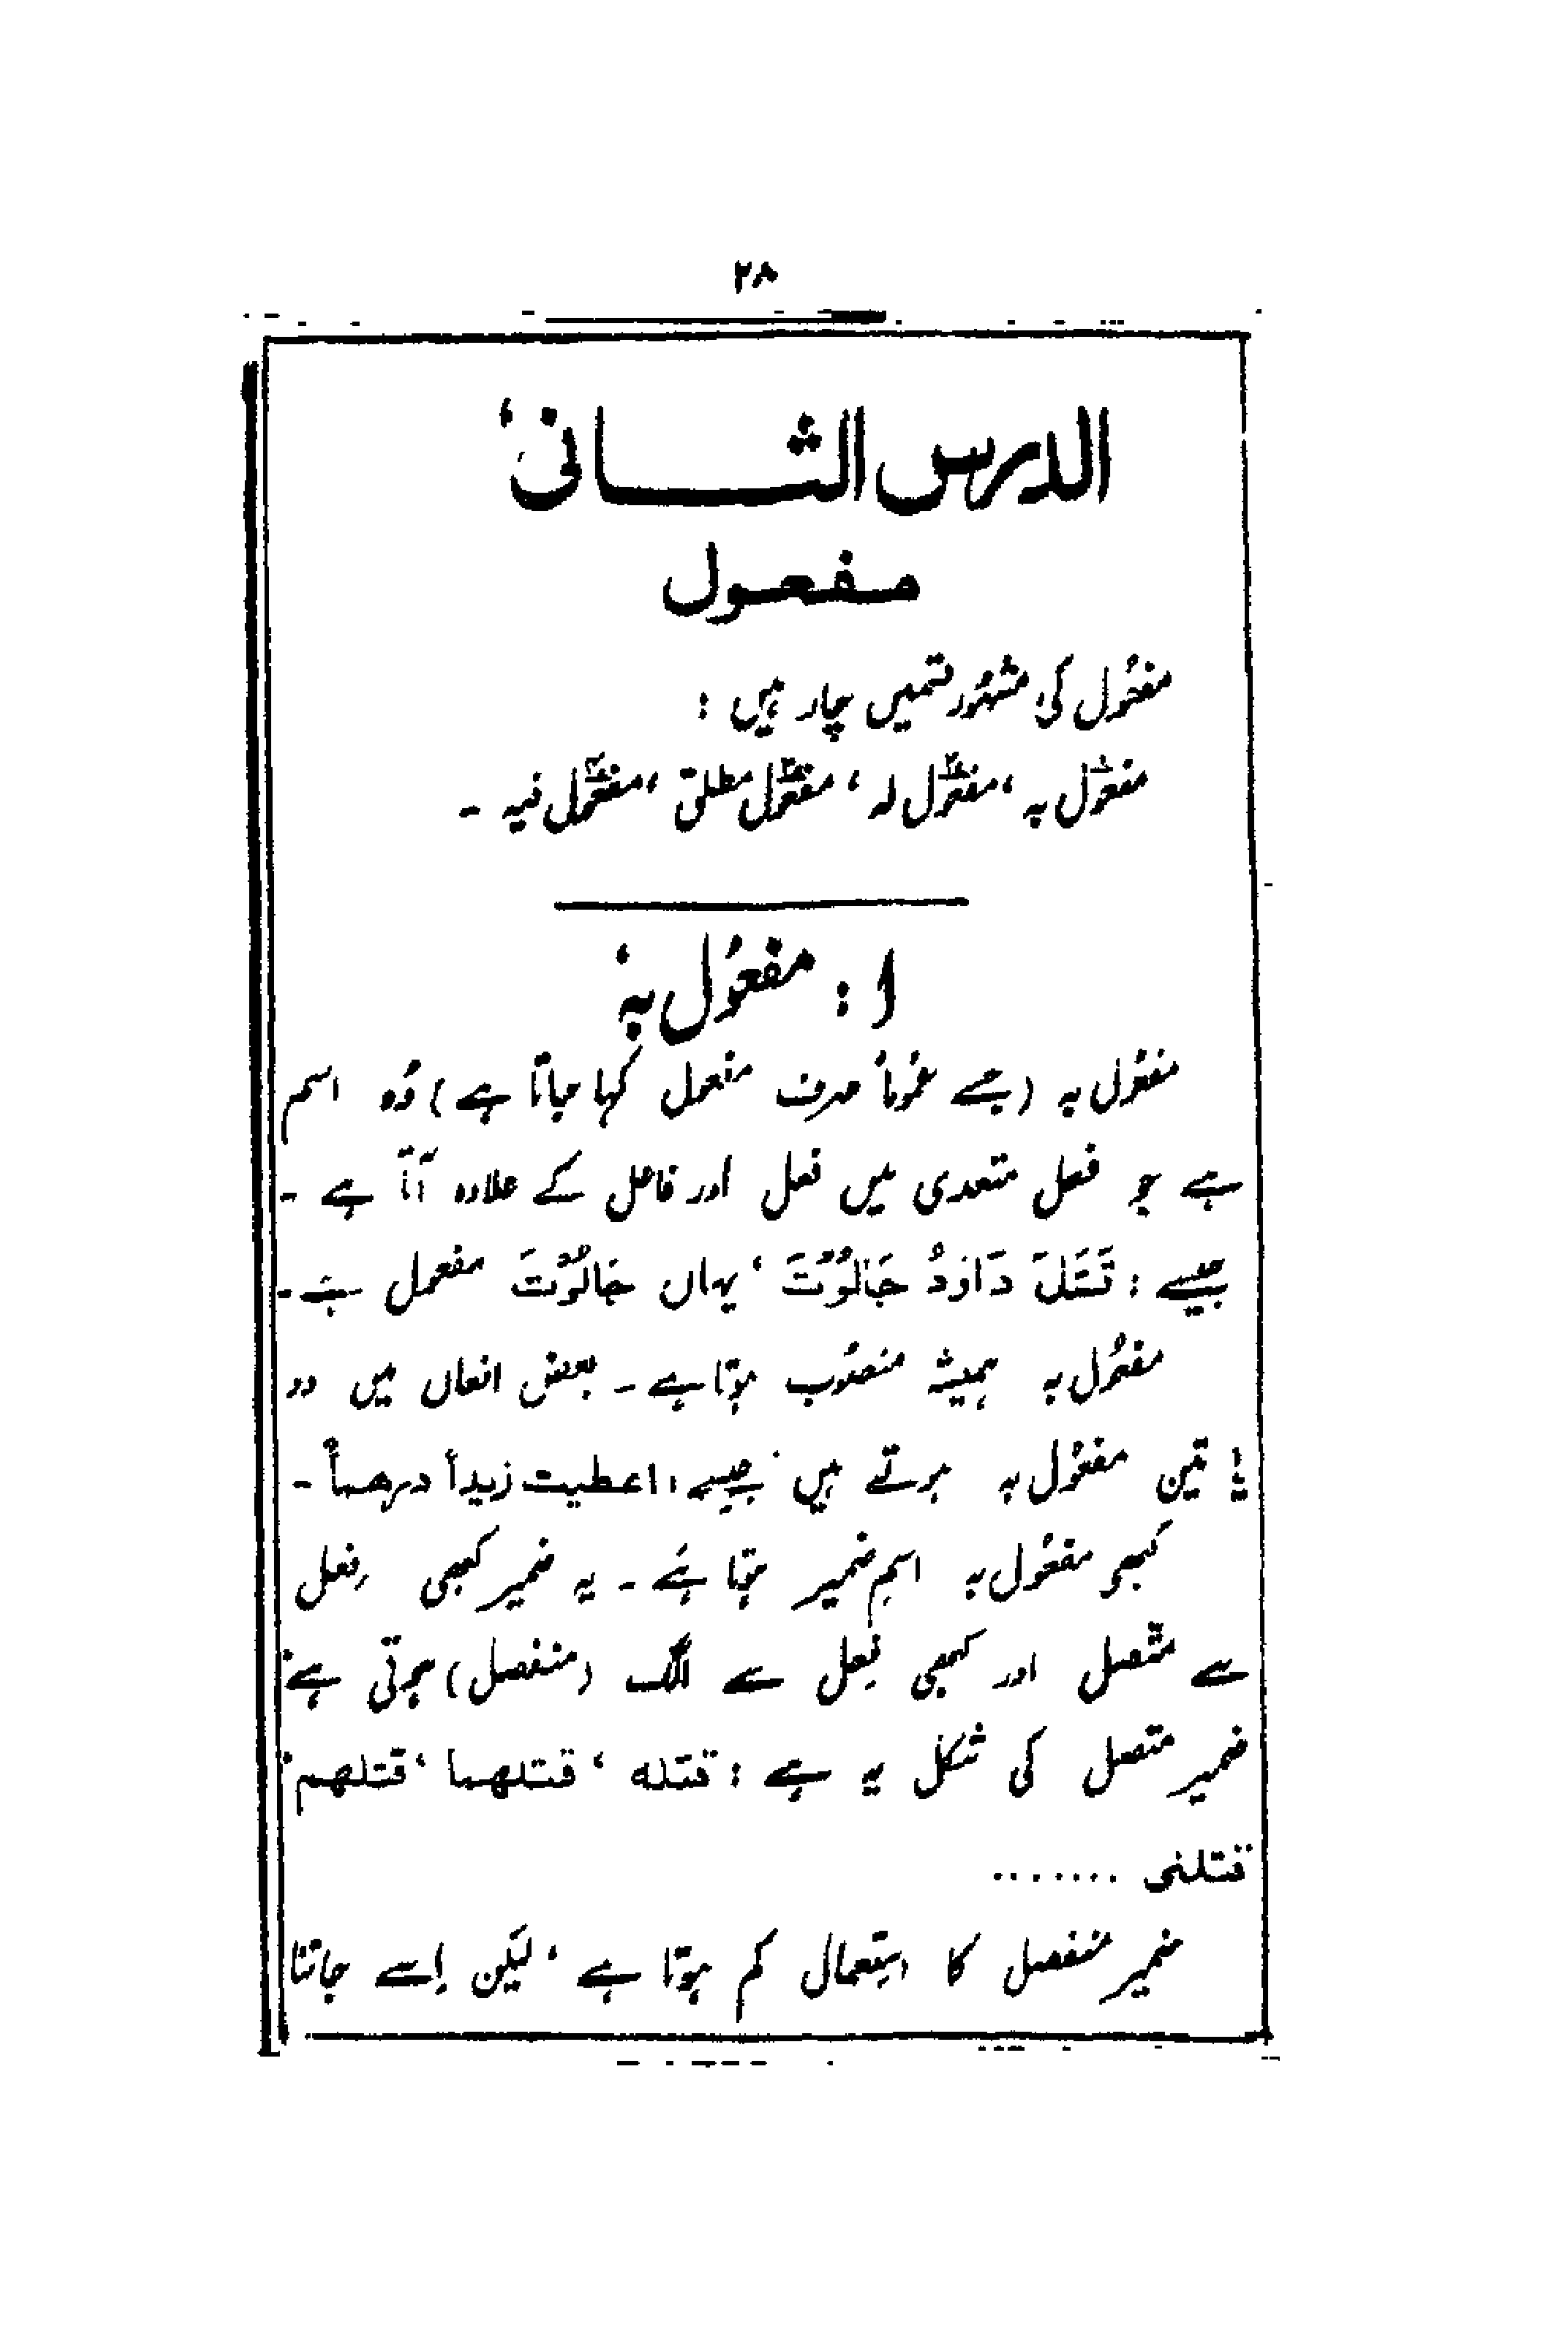 ۲۸
الدرس الثانی
مفعول
مفعُول کی مشہُور قسمیں چار ہیں :
مفعُول بہ ، مفعُول لہ ، مفعُول مطلق ، مفعُول فیہ ۔
۱ : مفعُول بہٖ
مفعُول بہ (جسے عمُوماً صرف مفعول کہا جاتا ہے) وُہ اسم
ہے جو فعل متعدی میں فعل اور فاعل کے علاوہ آتا ہے ۔
جیسے : قَتَلَ دَاوٗدُ جَالُوْتَ ، یہاں جَالُوْتَ مفعول ہے ۔
مفعُول بہ ہمیشہ منصُوب ہوتا ہے ۔ بعض افعال میں دو
یا تین مفعُول بہ ہوتے ہیں جیسے : اعطیت زیداً درهماً ۔
کبھی مفعُول بہ اسمِ ضمیر ہوتا ہے ۔ یہ ضمیر کبھی فعل
سے متّصل اور کبھی فِعل سے الگ (منفصل) ہوتی ہے
ضمیر متصل کی شکل یہ ہے : قتله ، قتلهما ، قتلهم
قتلنی .......
ضمیر منفصل کا استعمال کم ہوتا ہے ، لیکن اِسے جاننا